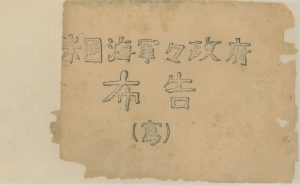 米国海軍々政府
布告
(写)